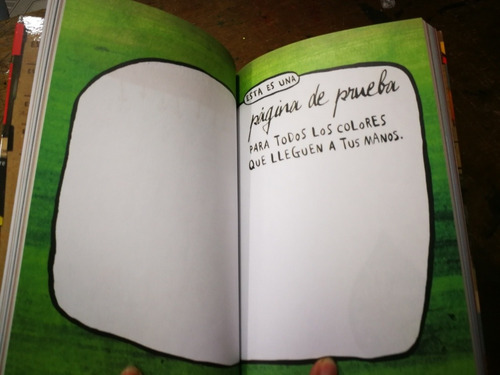 ESTA ES UNA
página de prueba
PARA TODOS LOS COLORES
QUE LLEGUEN A TUS MANOS.